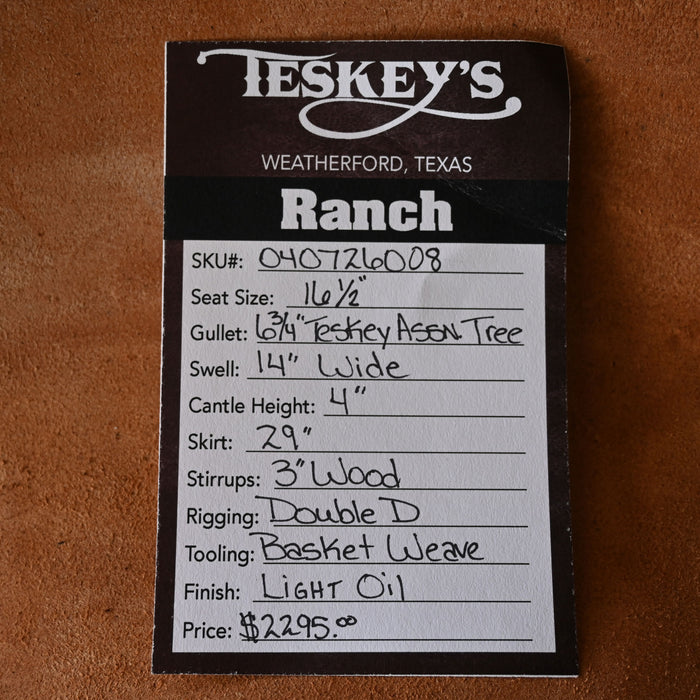 TESKEY'S
WEATHERFORD, TEXAS
Ranch
SKU#: 040726008
Seat Size: 16 1/2"
Gullet: 6 3/4" Teskey Assn. Tree
Swell: 14" Wide
Cantle Height: 4"
Skirt: 29"
Stirrups: 3" Wood
Rigging: Double D
Tooling: Basket Weave
Finish: LIGHT Oil
Price: $2295.00